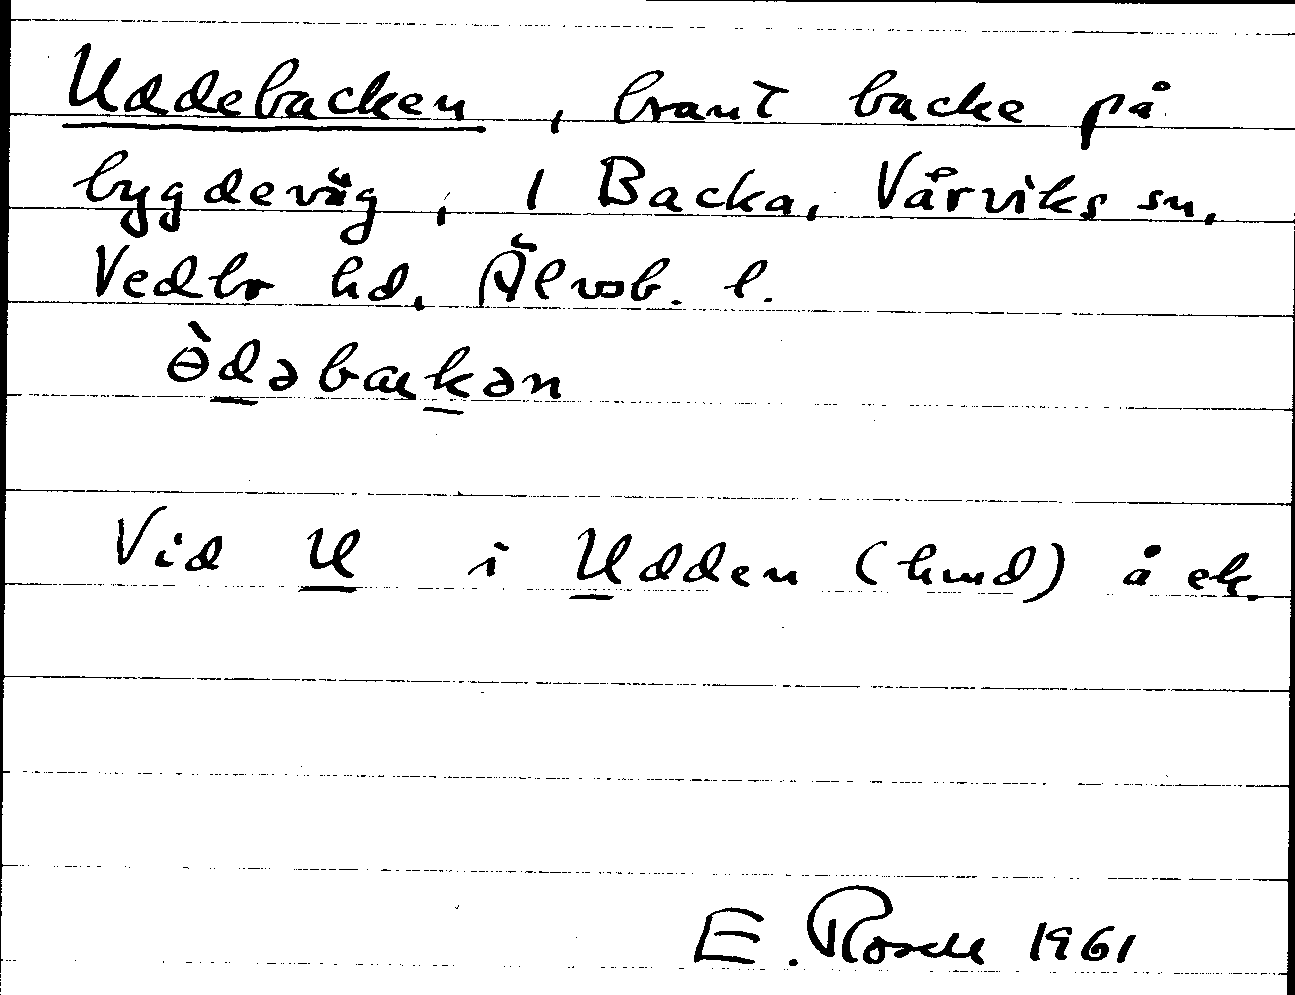 Uddebacken, brant backe på
bygdeväg, 1 Backa, Vårviks sn,
Vedbo hd, Älvsb. l.
ɵ̀dəbakən
Vid U i Udden (hmd) å ek.
E. Rosell 1961